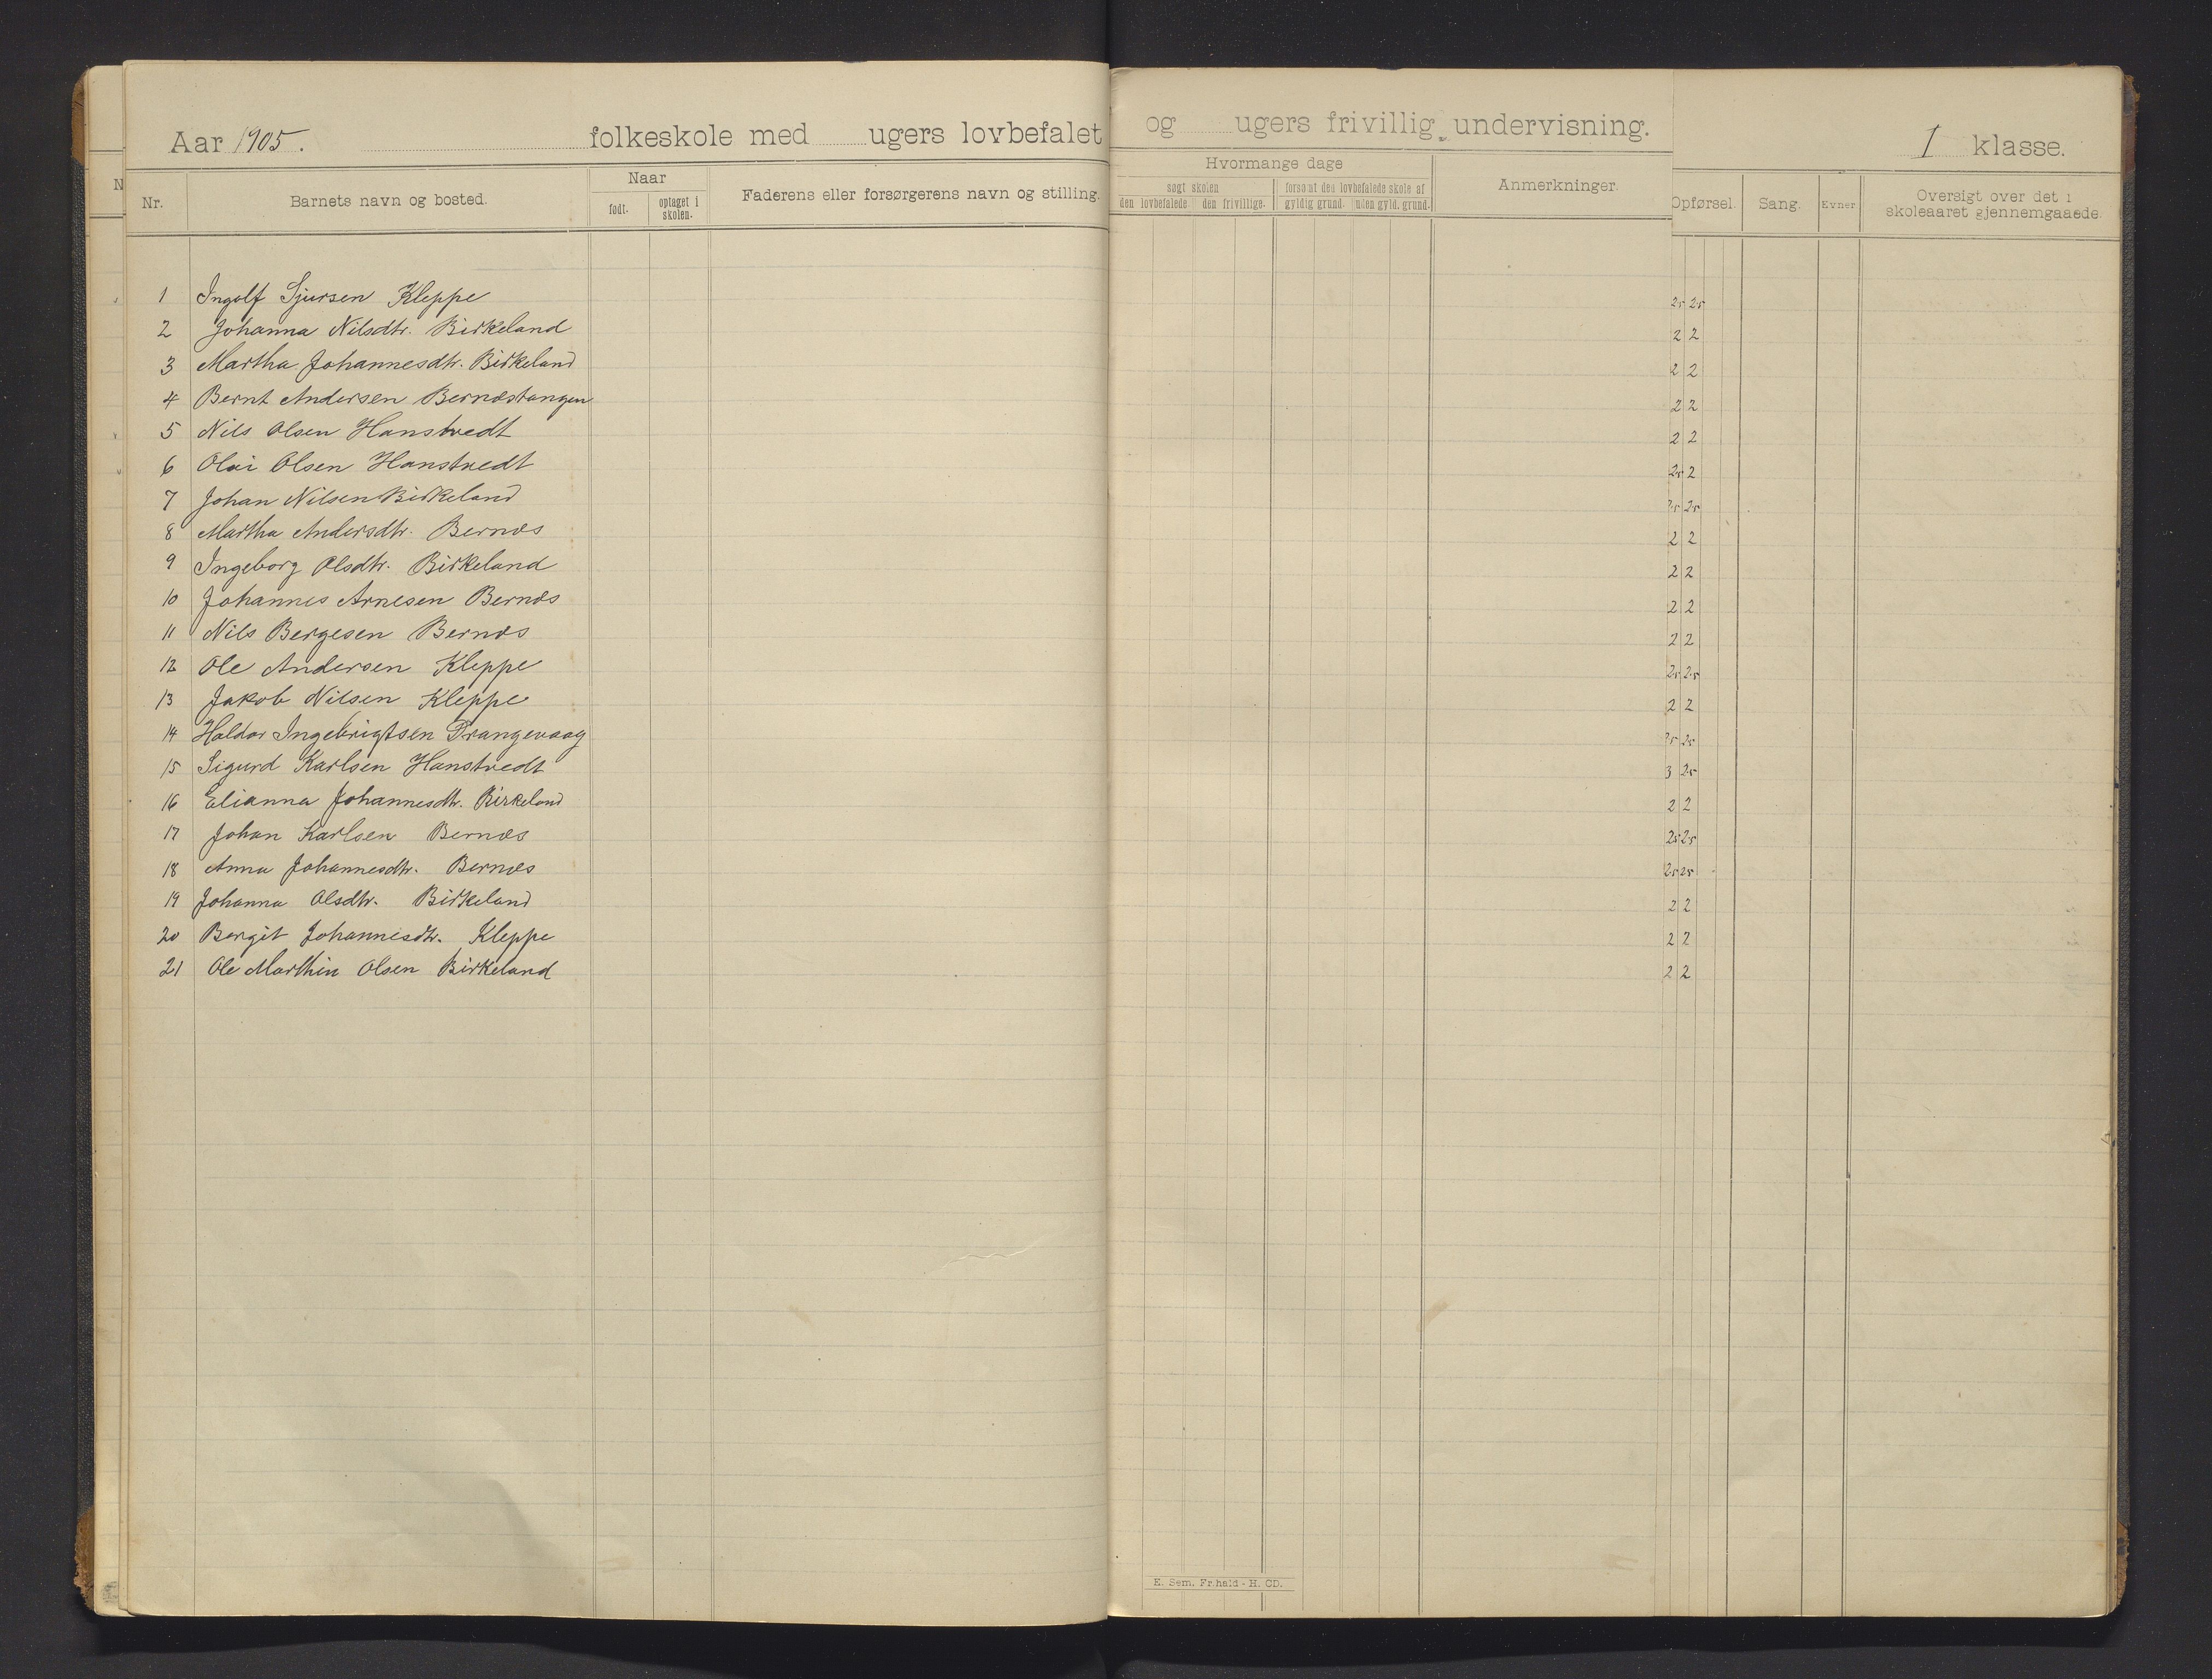 Aar 1905. folkeskole med ugers lovbefalet og ugers frivillig undervisning. I klasse.
Nr. Barnets navn og bosted. Naar født. optaget i skolen. Faderens eller forsørgerens navn og stilling. Hvormange dage søgt skolen den lovbefalede den frivillige. forsømt den lovbefalede skole af gyldig grund. uten gyld. grund. Anmerkninger. Opførsel. Sang. Evner. Oversigt over det i skoleaaret gjennemgaaede.
1 Ingolf Sjursen Kleppe 2.5 2.5
2 Johanna Nilsdtr. Birkeland 2 2
3 Martha Johannesdtr. Birkeland 2 2
4 Bernt Andersen Bernæstangen 2 2
5 Nils Olsen Hanstvedt 2 2
6 Olai Olsen Hanstvedt 2.5 2
7 Johan Nilsen Birkeland 2.5 2.5
8 Martha Andersdtr. Bernæs 2 2
9 Ingeborg Olsdtr. Birkeland 2 2
10 Johannes Arnesen Bernæs 2 2
11 Nils Bergesen Bernæs 2 2
12 Ole Andersen Kleppe 2.5 2.5
13 Jakob Nilsen Kleppe 2 2
14 Haldor Ingebrigtsen Drangevaag 2.5 2.5
15 Sigurd Karlsen Hanstvedt 3 2.5
16 Elianna Johannesdtr. Birkeland 2 2
17 Johan Karlsen Bernæs 2.5 2.5
18 Anna Johannesdtr. Bernæs 2.5 2.5
19 Johanna Olsdtr. Birkeland 2 2
20 Bergit Johannesdtr. Kleppe 2 2
21 Ole Marthin Olsen Birkeland 2 2
E. Sem, Fr.hald - H. CD.